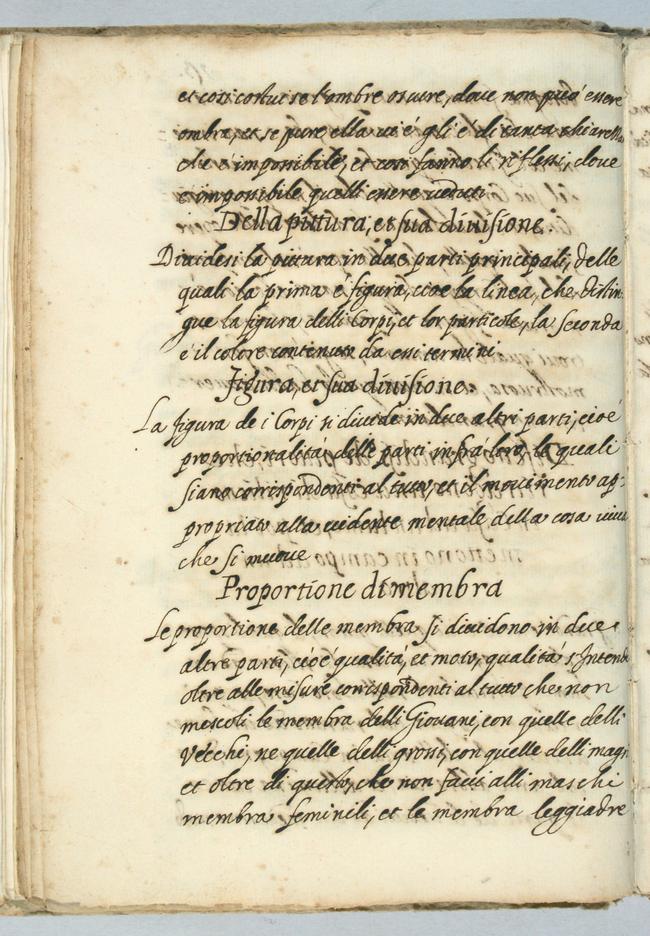 et cosi cortur se l'ombre oscure, doue non può essere
ombra, et se pure ella ui é gli é di tanta chiarezza
che é impossibile, et cosi fanno li riflessi, doue
é impossibile quelli essere ueduti
Della pittura, et sua diuisione
Diuidesi la pittura in due parti principali, delle
quali la prima é figura, cioe la linea, che distin
gue la figura delli Corpi, et lor particole, la seconda
é il colore contenuto da essi termini
Figura, et sua diuisione
La figura de i Corpi si diuide in due altri parti, cioé
proportionalità delle parti infrà loro, le quali
siano correspondenti al tutto, et il mouimento ap:
propriato alla euidente mentale della cosa uiua
che si muoue
Proportione di membra
Le proportione delle membra si diuidono in due
altre parti, cioé qualità, et moto, qualità s'Intende
oltre alle misure correspondenti al tutto che non
mescoli le membra delli Giouani, con quelle delli
Vecchi, ne quelle delli grossi, con quelle delli magri
et oltre di questo, che non facci alli maschi
membra feminili, et le membra leggiadre